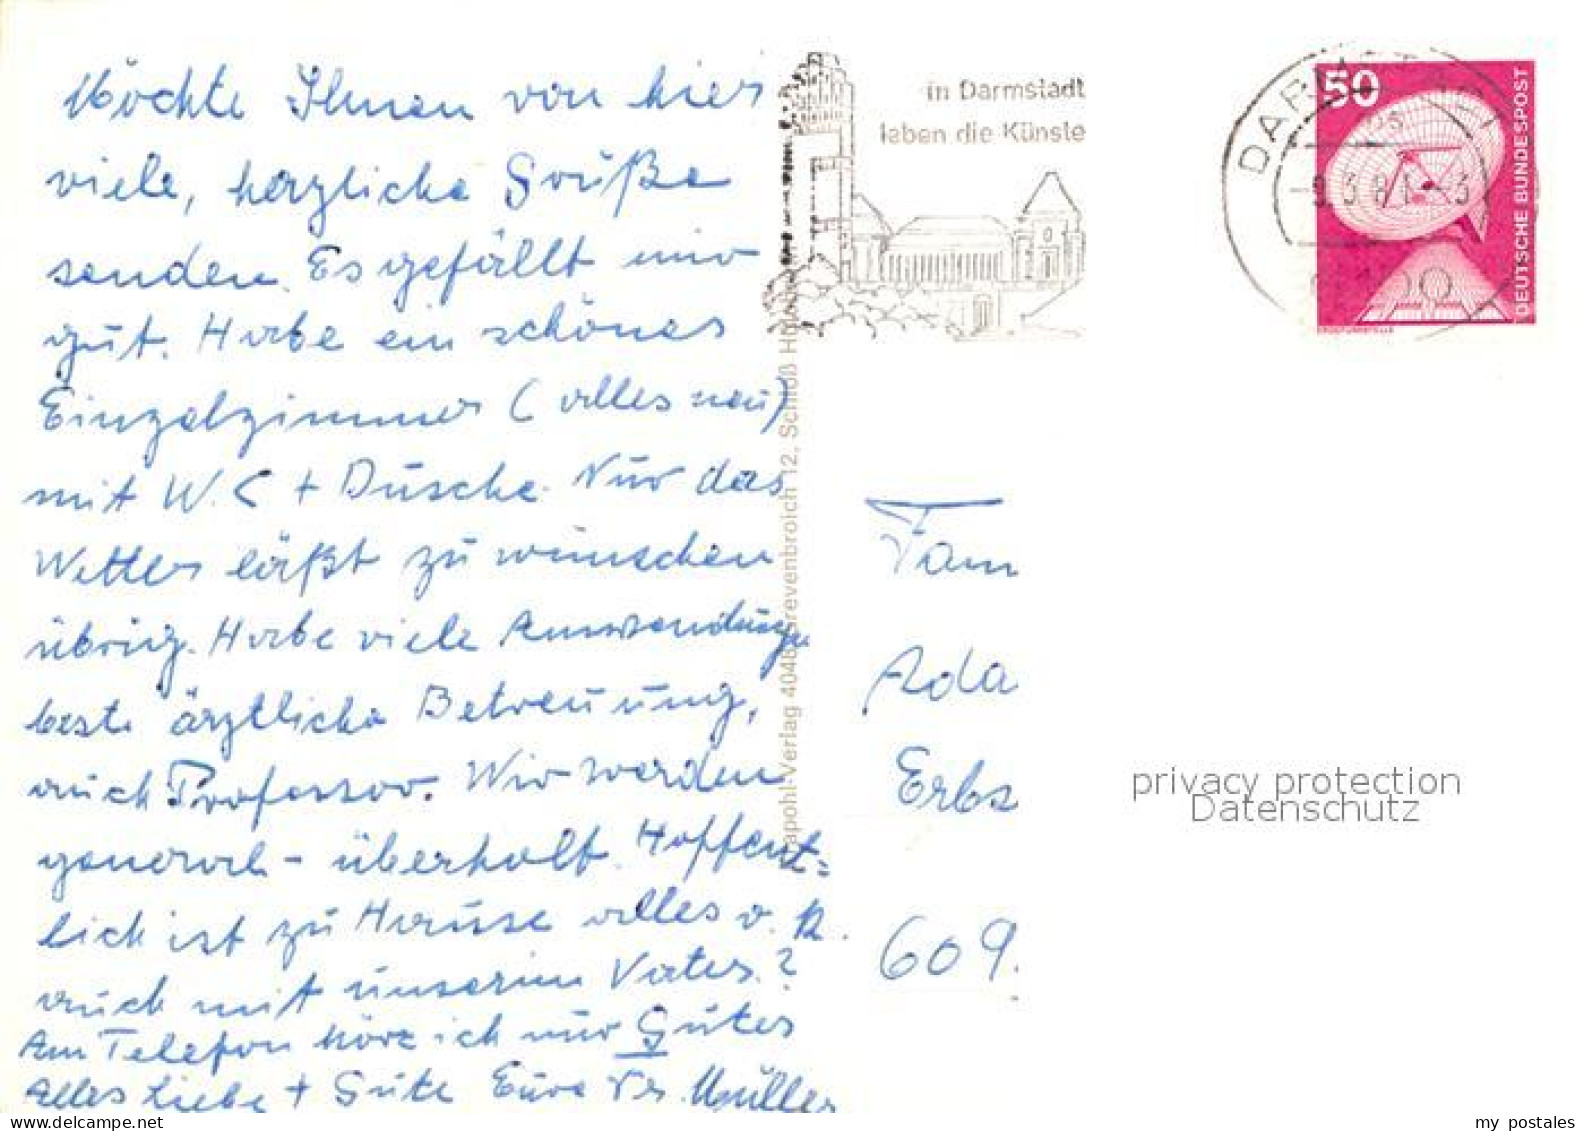 Möchte Ihnen von hier
viele, herzliche Grüße
senden. Es gefällt mir
gut. Habe ein schönes
Einzelzimmer (alles neu)
mit W.C + Dusche. Nur das
Wetter läßt zu wünschen
übrig. Habe viele Anwendungen
beste ärztliche Betreuung,
auch Professor. Wir werden
general- überholt. Hoffent=
lich ist zu Hause alles o. k.
auch mit unserem Vater?
Am Telefon höre ich nur Gutes
Alles Liebe + Gute Eure Fr. Müller
in Darmstadt
leben die Künste
apohl-Verlag 4048 Grevenbroich 12, Schloß H
DARMSTADT
-9.3.81-3
6100
50
DEUTSCHE BUNDESPOST
ERDEFUNKSTELLE
Fam
Ada
Erbs
609.
privacy protection
Datenschutz
www.delcampe.net
my_postales